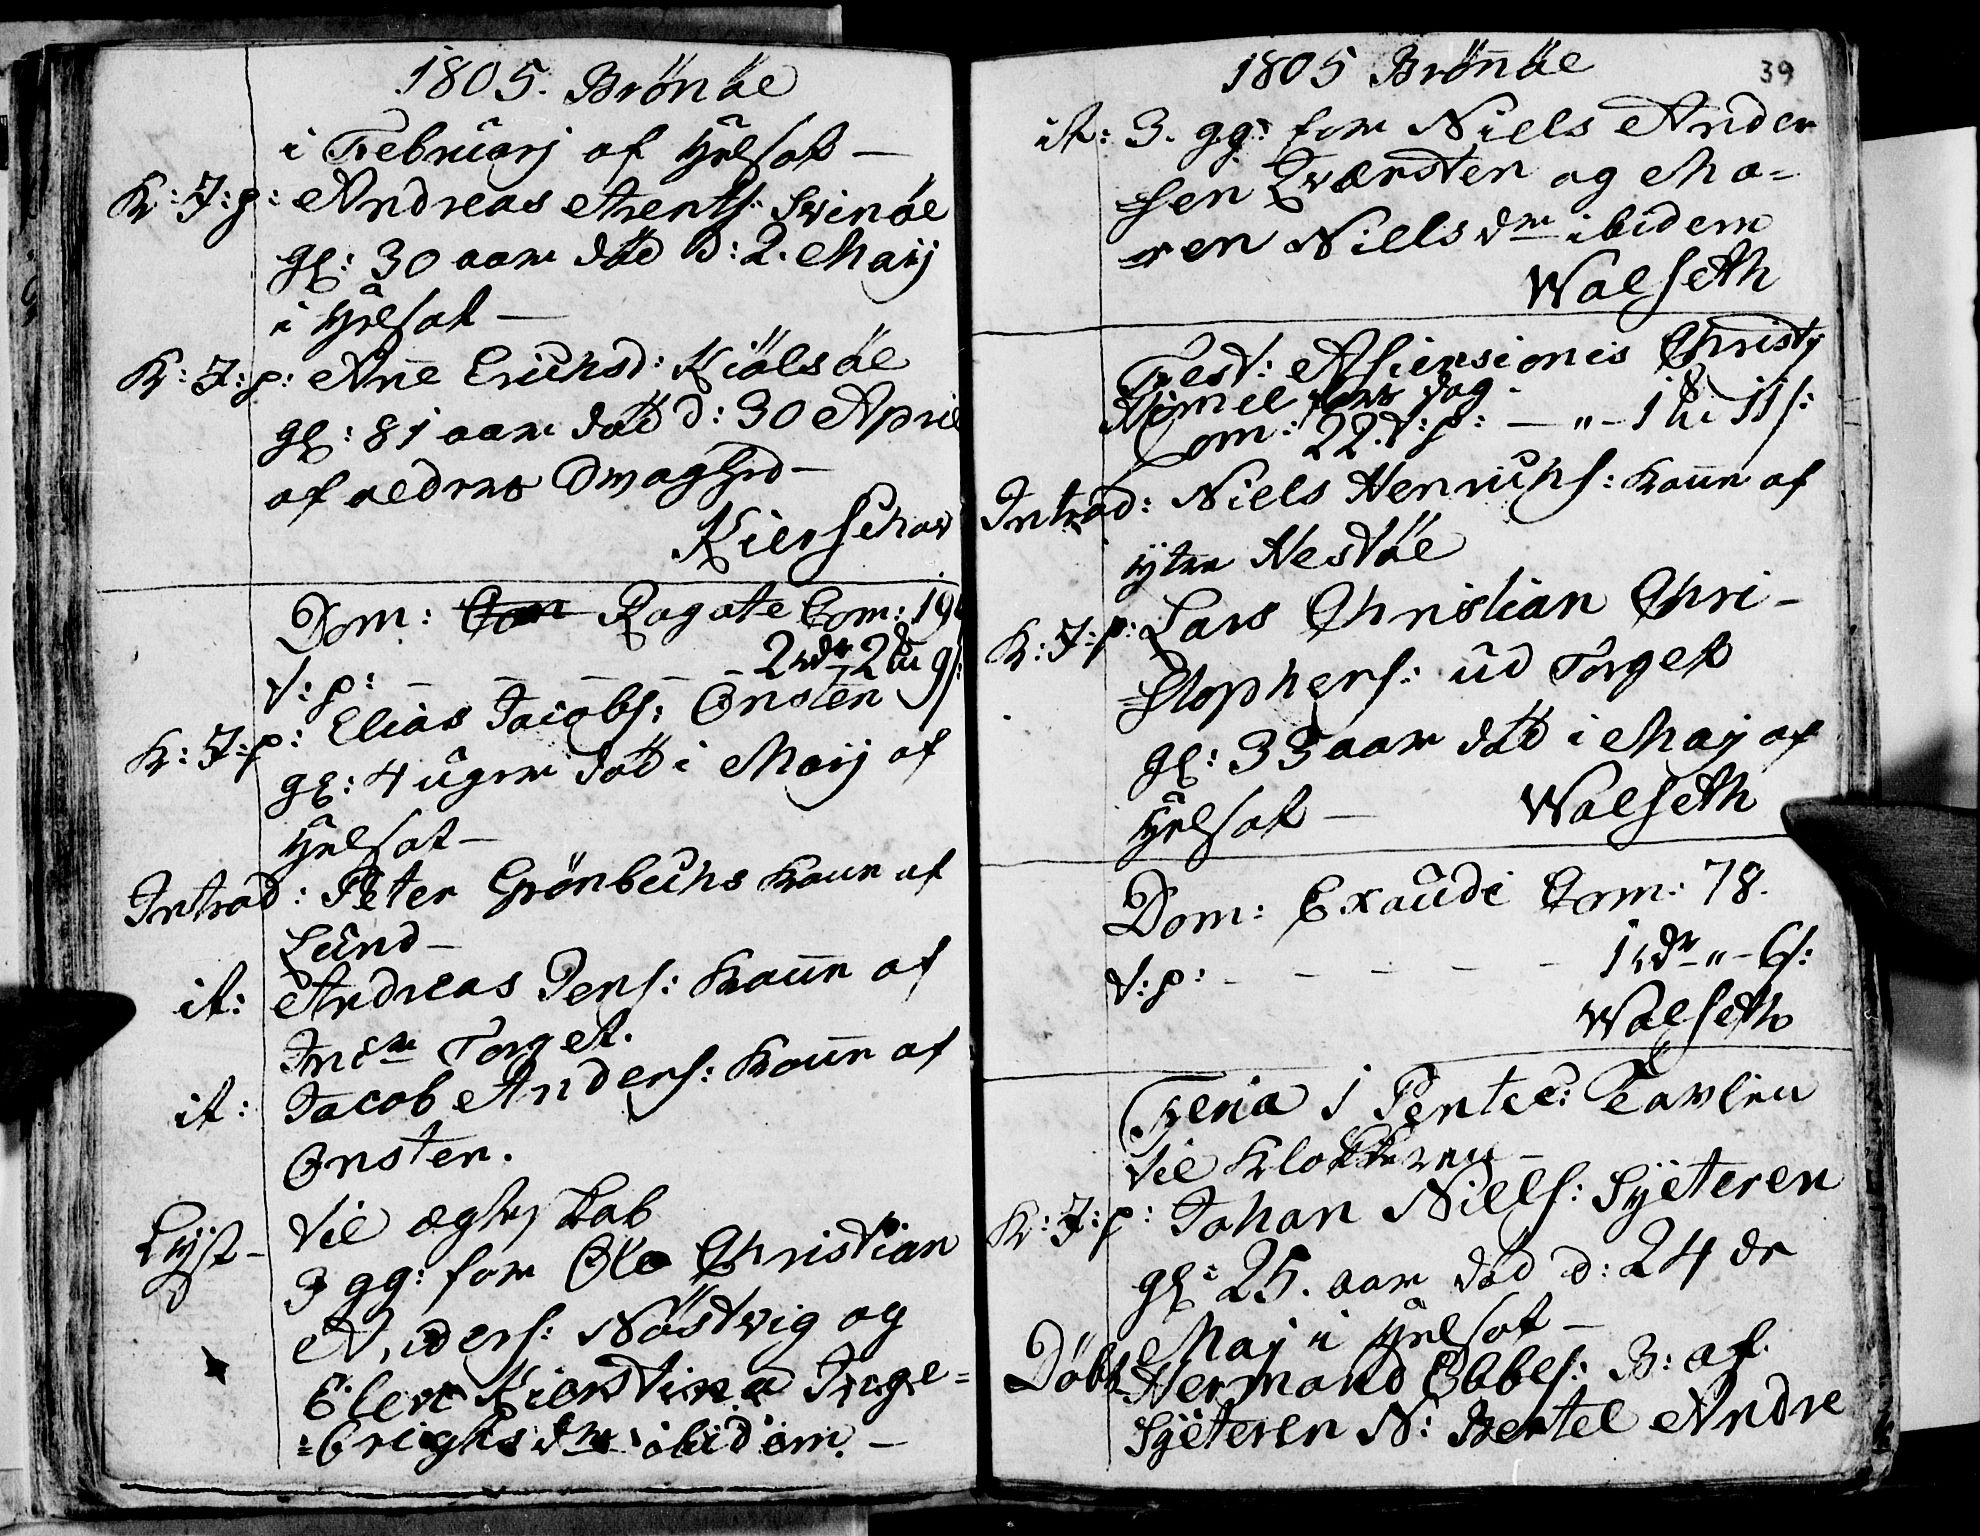 1805. Brönöe
i Februarj af Hælsot —
K: J: p: Andreas Arents: Svinöe
gl: 30 aar död d: 2. Maij
i Hælsot —
K: J: p: Ane Erichsd: Kiölsöe
gl: 81 aar död d: 30 April
af alders
Kierschow
Dom: Rogate Com: 19
T: p: — — — — — 2 rdr 2 9 s:
K: J: p: Elias Jacobs: Onsten
gl: 4 uger död i Maij af
Hælsot —
Introd: Peter Grönbechs Kone af
Lund —
it: Andreas Jens: Kone af
Torget.
it: Jacob Anders: Kone af
Onsten.
Lyst — til ægteskab
3 gg: for Ole Christian
Anders: Nöstvig og
Elen Kierstina Inge=
=brigts dr: ibidem. —
1805 Brönöe 39
it: 3. gg: for Niels Ander
sen Tværsten og Ma=
ren Niels dr ibidem
Walseth
Fest: Assensionis Christj
Himel farts dag —
Com: 22. T: p: — „ — 1 11 s:
Introd: Niels Henrichs: Kone af
ytre Hestöe
K: J: p: Lars Christian Chri-
stophers: ud Torget
gl: 33 aar död i Maj af
Hælsot — Walseth
Dom: Exaudi Com: 78.
T: p: — — — — — 1 rdr „ — 6 s:
Walseth
Feria 1 Pentec: Tavlen
til Klokkeren —
K: J: p: Johan Niels: Syeteren
gl: 25. aar död d: 24 de
Maj i Hælsot —
Döbt Hermand Ebbes: B: af
Syeteren N: Bertel Andre